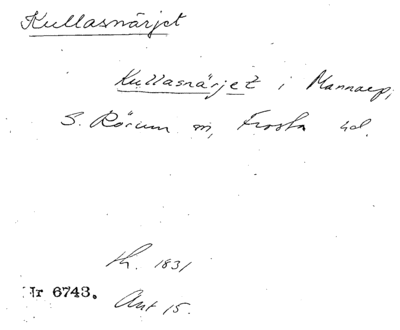 Kullasnärjet
Kullasnärjet i Mannarp,
S. Rörum sn, Frosta hd.
th. 1831
Nr 6743. Ant 15.